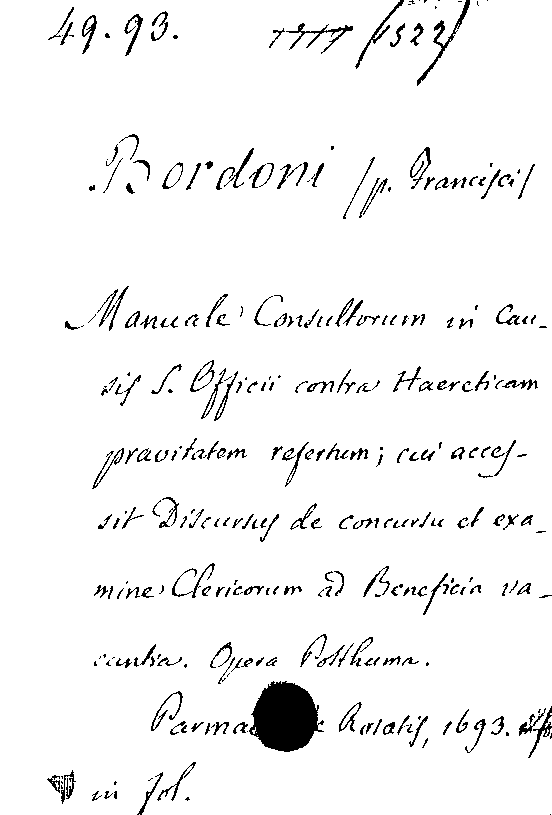 49.93. 1717 (1522)
Bordoni (p. Francisci)
Manuale Consultorum in Cau-
sis S. Officii contra Haereticam
pravitatem refertum; cui acces-
sit Discursus de concursu et exa-
mine Clericorum ad Beneficia va-
cantia. Opera Posthuma.
Parmae Rosatis, 1693.
in fol.